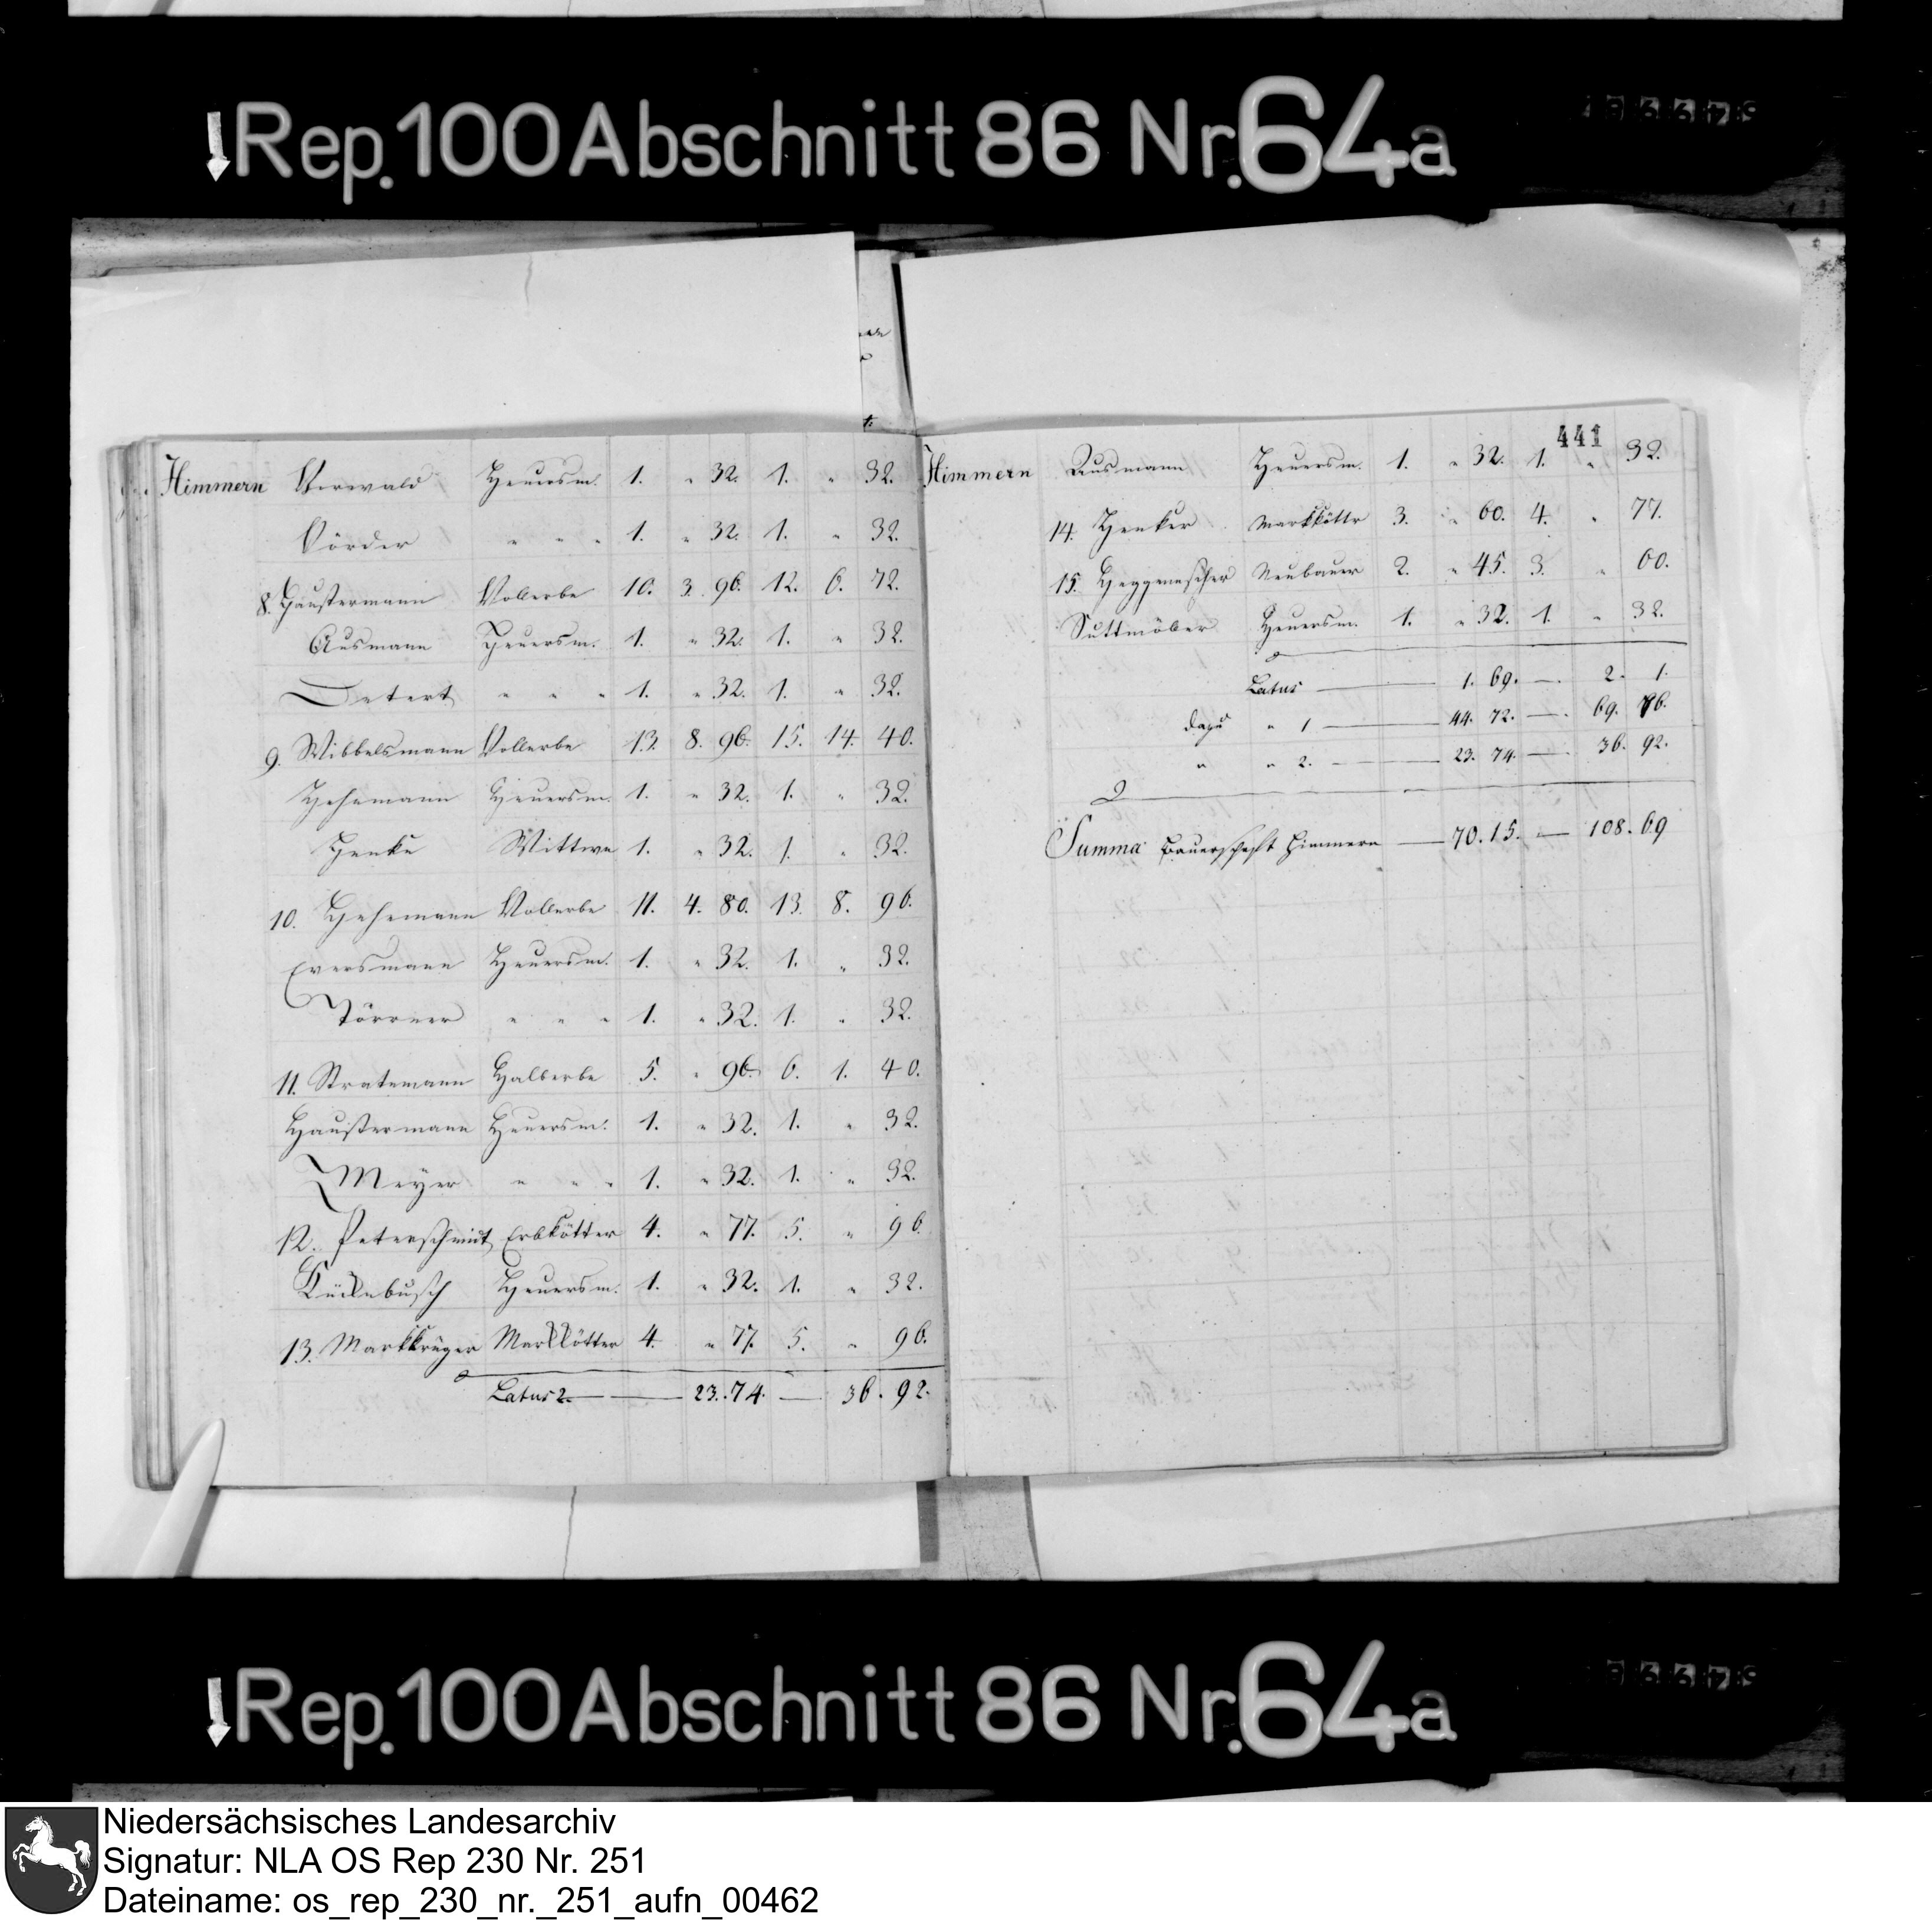 Rep. 100 Abschnitt 86 Nr. 64a
Himmern Verwald Heuersm. 1. " 32. 1. " 32.
Vörder " " " 1. " 32. 1. " 32.
8. Haustermann Vollerbe 10. 3. 96. 12. 6. 72.
Ausmann Heuersm. 1. " 32. 1. " 32.
Detert " " " 1. " 32. 1. " 32.
9. Wibbelsmann Vollerbe 13. 8. 96. 15. 14. 40.
Hehemann Heuersm. 1. " 32. 1. " 32.
Henke Wittwe 1. " 32. 1. " 32.
10. Hehemann Vollerbe 11. 4. 80. 13. 8. 96.
Eversmann Heuersm. 1. " 32. 1. " 32.
Törner " " " 1. " 32. 1. " 32.
11. Stratemann Halberbe 5. " 96. 6. 1. 40.
Haustermann Heuersm. 1. " 32. 1. " 32.
Meyer " " " 1. " 32. 1. " 32.
12. Peterschmidt Erbkötter 4. " 77. 5. " 96.
Heuersm. 1. " 32. 1. " 32.
13. Markkrüger Markkötter 4. " 77. 5. " 96.
Latus 2. — 23. 74. — 36. 92.
441
Himmern Ausmann Heuersm. 1. " 32. 1. " 32.
14. Henker Markkötter 3. " 60. 4. " 77.
15. Neubauer 2. " 45. 3. " 60.
Suttmöller Heuersm. 1. " 32. 1. " 32.
Latus — 1. 69. — 2. 1.
dazu " 1 — 44. 72. — 69. 76.
" " 2. — 23. 74. — 36. 92.
Summa Bauerschaft Himmern — 70. 15. — 108. 69
Rep. 100 Abschnitt 86 Nr. 64a
Niedersächsisches Landesarchiv
Signatur: NLA OS Rep 230 Nr. 251
Dateiname: os_rep_230_nr._251_aufn_00462